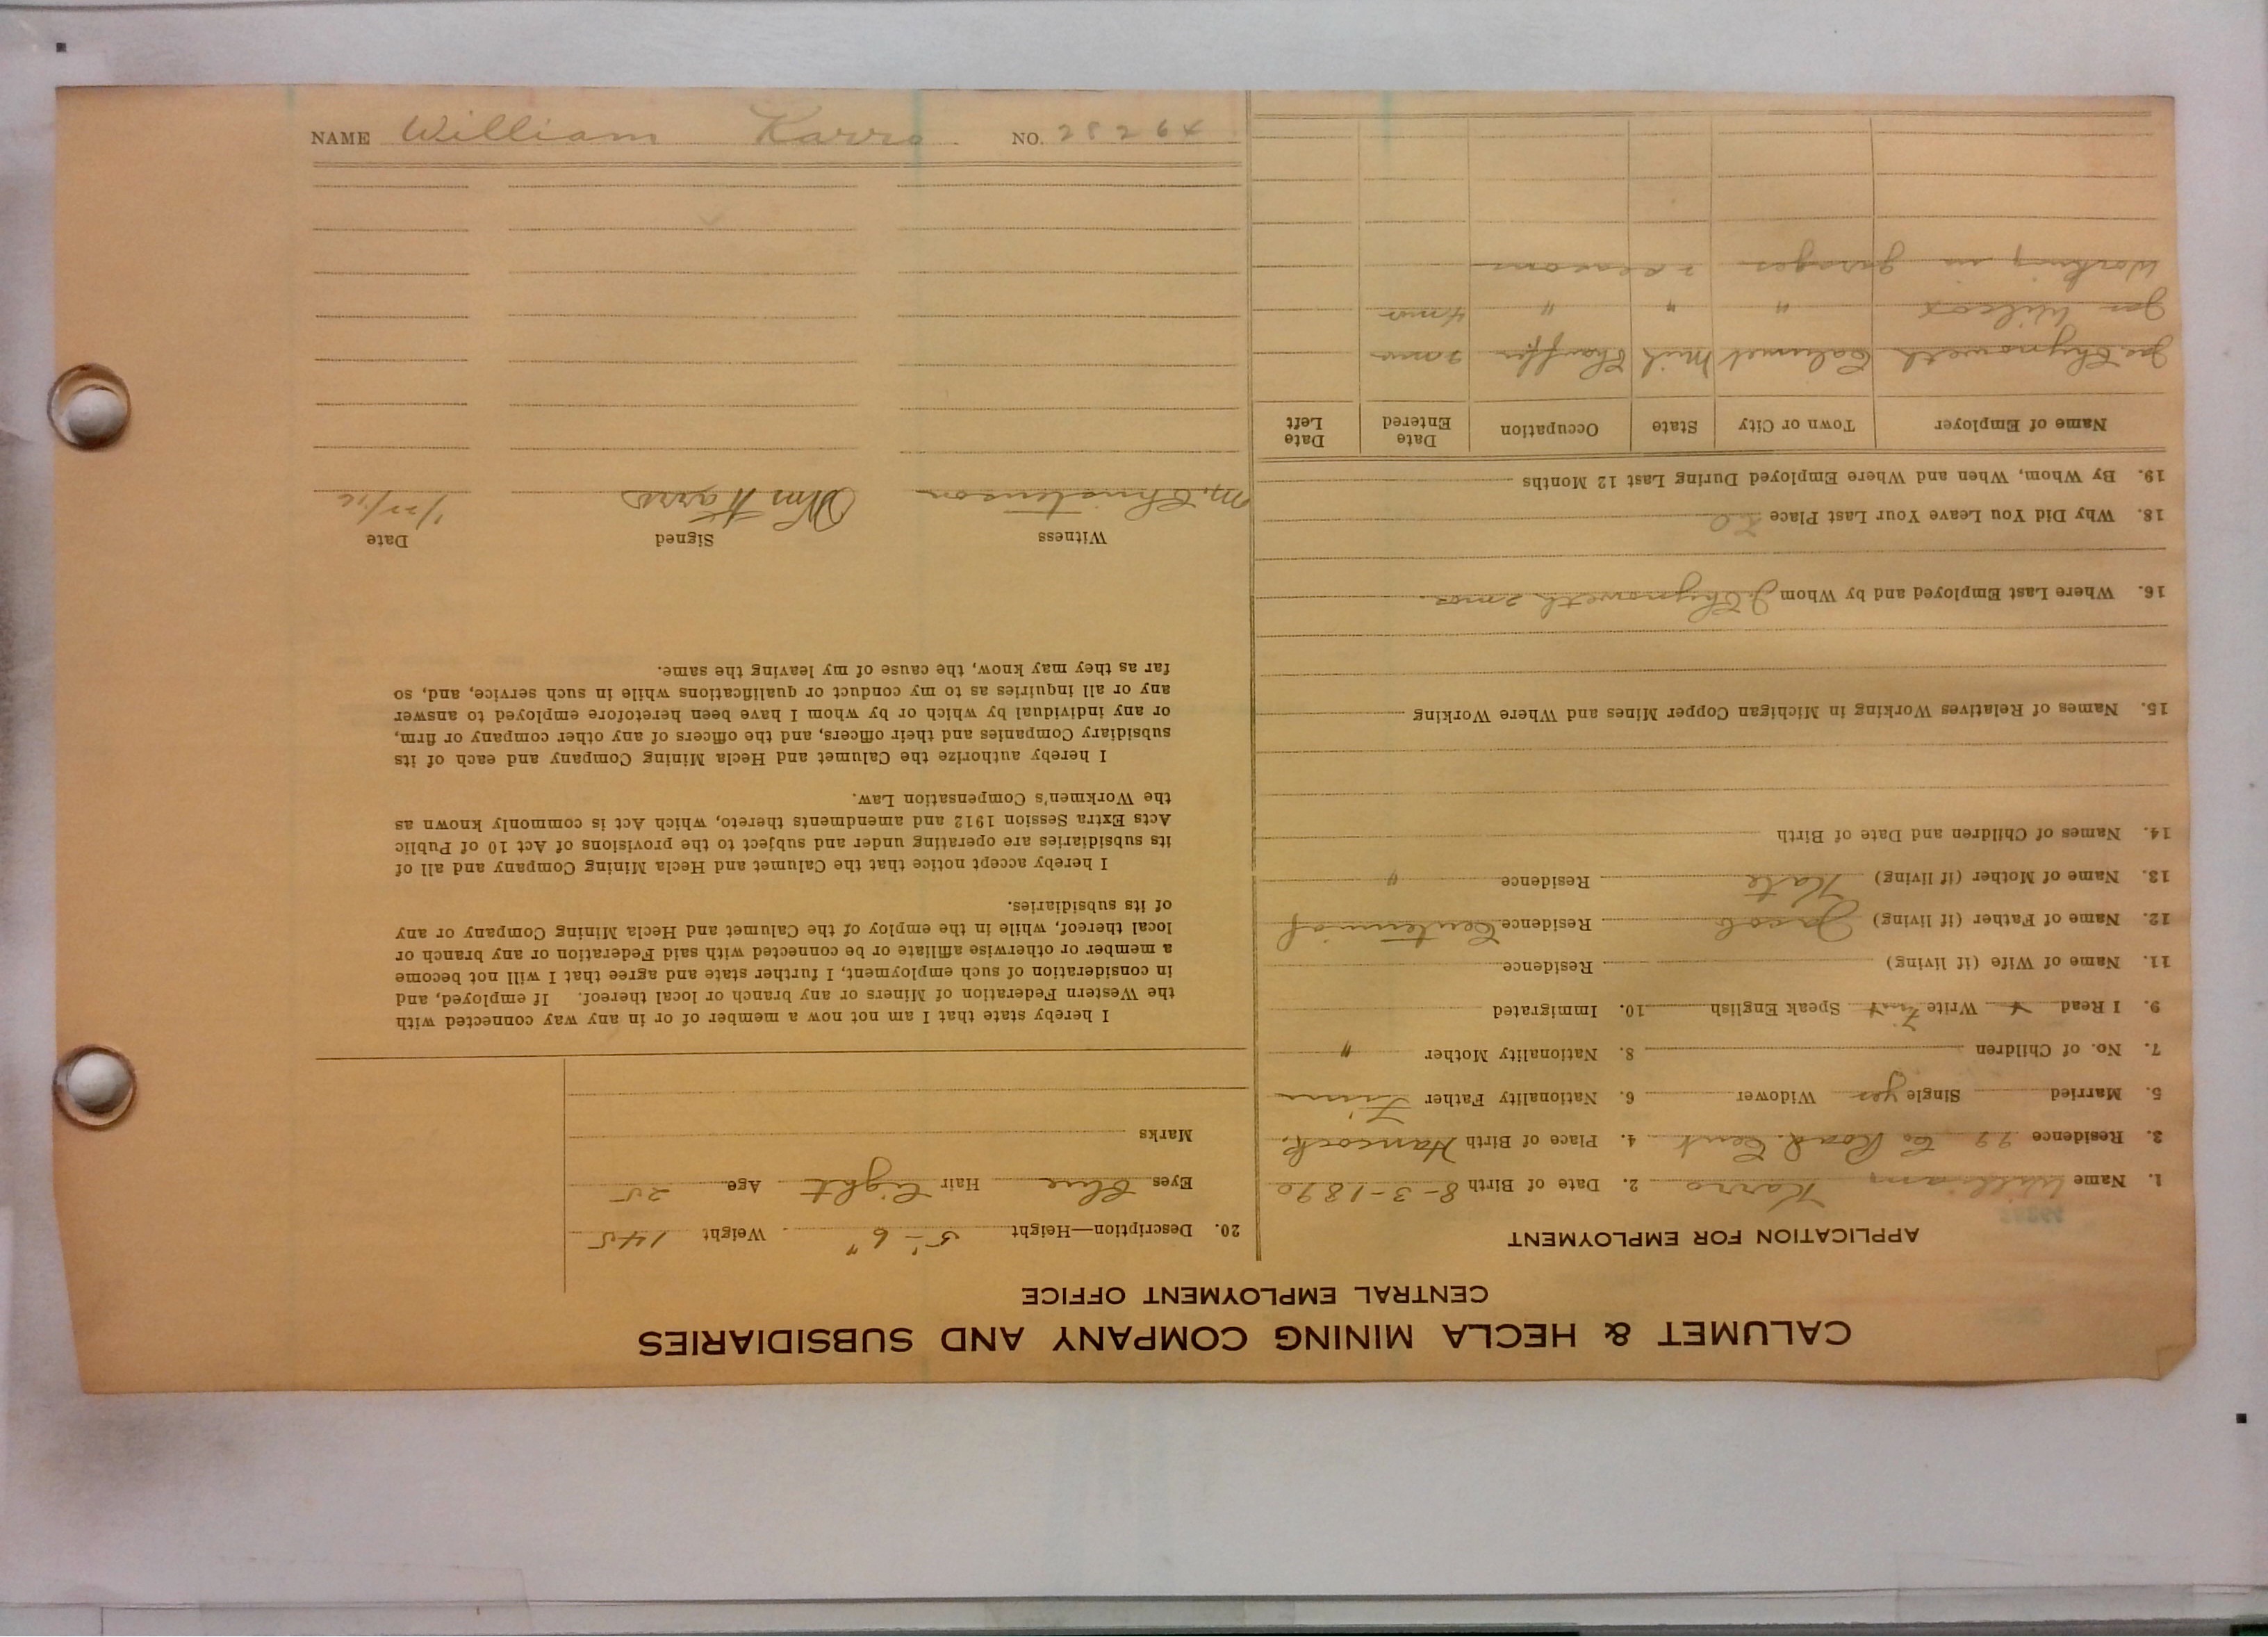 CALUMET & HECLA MINING COMPANY AND SUBSIDIARIES
CENTRAL EMPLOYMENT OFFICE
APPLICATION FOR EMPLOYMENT
1. Name William Karro 2. Date of Birth 8-3-1890
3. Residence 99 Co Road Cent 4. Place of Birth Hancock
5. Married Single yes Widower 6. Nationality Father Finn
7. No. of Children 8. Nationality Mother "
9. I Read Write Speak English 10. Immigrated
11. Name of Wife (if living) Residence
12. Name of Father (if living) Jacob Residence Centennial
13. Name of Mother (if living) Kate Residence "
14. Names of Children and Date of Birth
15. Names of Relatives Working in Michigan Copper Mines and Where Working
16. Where Last Employed and by Whom J. Chynoweth 2 mos
18. Why Did You Leave Your Last Place
19. By Whom, When and Where Employed During Last 12 Months
Name of Employer Town or City State Occupation Date Entered Date Left
Chynoweth Calumet Mich Chauffer 2 mos
Wilcox " " " 4 mos
Working in garages 2 seasons
20. Description—Height 5'-6" Weight 145
Eyes Blue Hair Light Age 25
Marks
I hereby state that I am not now a member of or in any way connected with
the Western Federation of Miners or any branch or local thereof. If employed, and
in consideration of such employment, I further state and agree that I will not become
a member or otherwise affiliate or be connected with said Federation or any branch or
local thereof, while in the employ of the Calumet and Hecla Mining Company or any
of its subsidiaries.
I hereby accept notice that the Calumet and Hecla Mining Company and all of
its subsidiaries are operating under and subject to the provisions of Act 10 of Public
Acts Extra Session 1912 and amendments thereto, which Act is commonly known as
the Workmen's Compensation Law.
I hereby authorize the Calumet and Hecla Mining Company and each of its
subsidiary Companies and their officers, and the officers of any other company or firm,
or any individual by which or by whom I have been heretofore employed to answer
any or all inquiries as to my conduct or qualifications while in such service, and, so
far as they may know, the cause of my leaving the same.
Witness Signed Date
M. Christenson Wm Karro 1/22/16
NAME William Karro NO. 28264